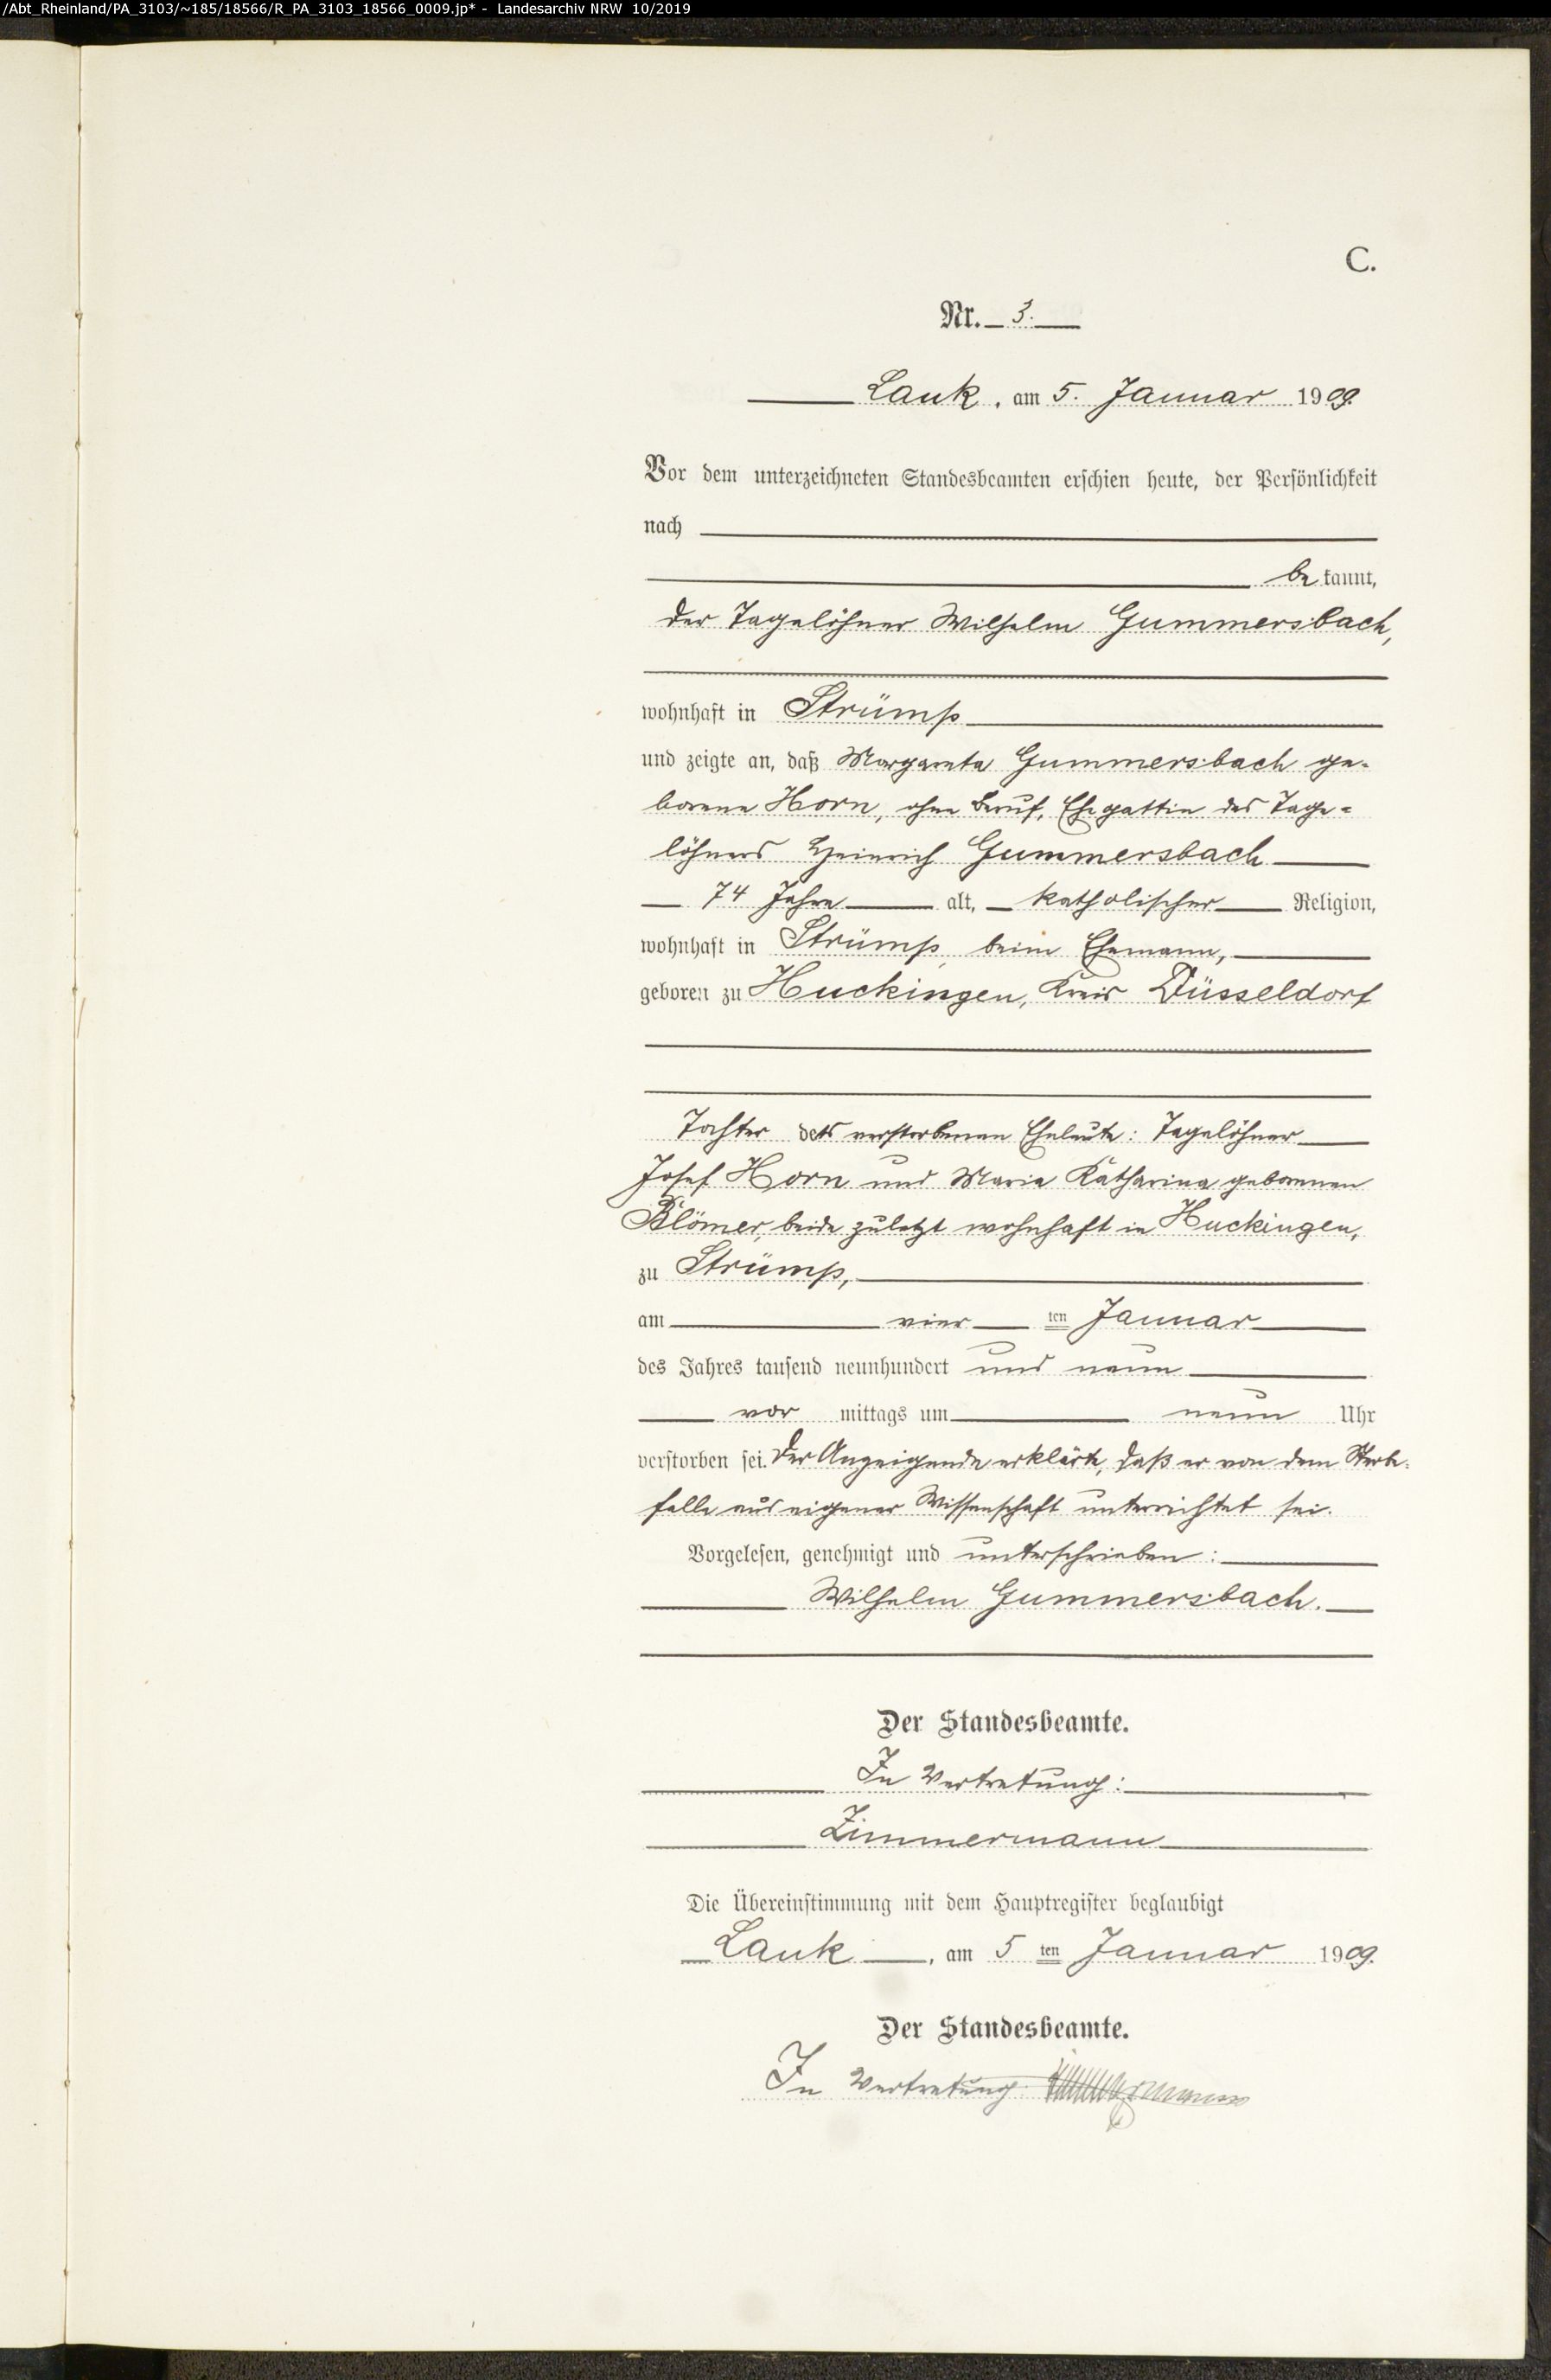 /Abt_Rheinland/PA_3103/~185/18566/R_PA_3103_18566_0009.jp* - Landesarchiv NRW 10/2019
C.
Nr. 3.
Lank, am 5. Januar 1909.
Vor dem unterzeichneten Standesbeamten erschien heute, der Persönlichkeit
nach
bekannt,
der Tagelöhner Wilhelm Gummersbach,
wohnhaft in Strümp
und zeigte an, daß Margareta Gummersbach ge-
borene Horn, ohne Beruf, Ehegattin des Tage-
löhners Heinrich Gummersbach
74 Jahre alt, katholischer Religion,
wohnhaft in Strümp beim Ehemann,
geboren zu Huckingen, Kreis Düsseldorf
Tochter der verstorbenen Eheleute: Tagelöhner
Josef Horn und Maria Katharina geborenen
Blömer, beide zuletzt wohnhaft in Huckingen,
zu Strümp,
am vier ten Januar
des Jahres tausend neunhundert und neun
vor mittags um neun Uhr
verstorben sei. Der Anzeigende erklärte, daß er von dem Sterbe-
falle aus eigener Wissenschaft unterrichtet sei.
Vorgelesen, genehmigt und unterschrieben:
Wilhelm Gummersbach.
Der Standesbeamte.
In Vertretung:
Zimmermann
Die Übereinstimmung mit dem Hauptregister beglaubigt
Lank, am 5 ten Januar 1909.
Der Standesbeamte.
In Vertretung Zimmermann